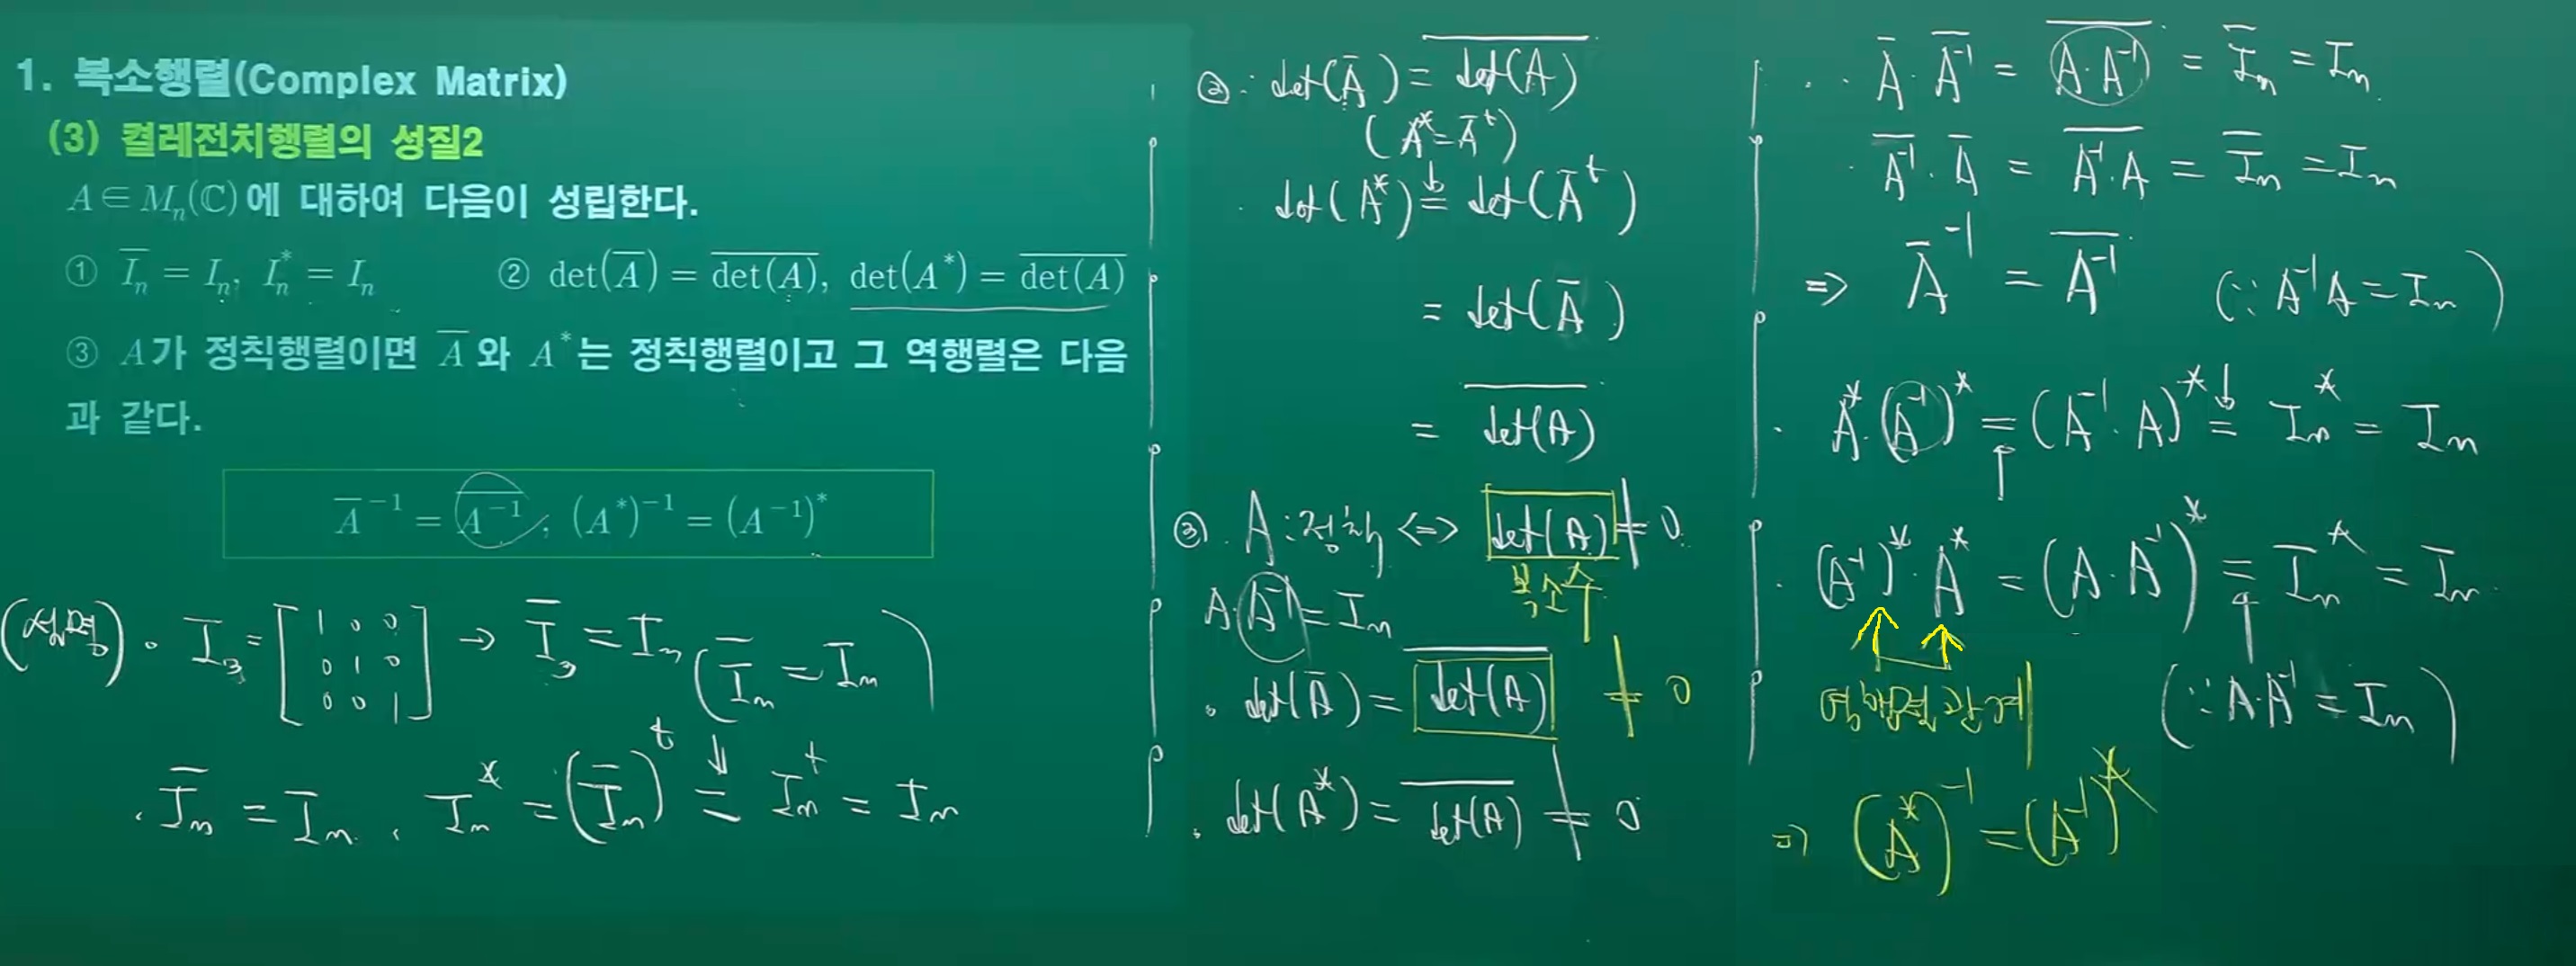 1. 복소행렬(Complex Matrix)
(3) 켤레전치행렬의 성질2
A ∈ Mₙ(ℂ)에 대하여 다음이 성립한다.
① I̅ₙ = Iₙ, Iₙ* = Iₙ ② det(A̅) = \overline{det(A)}, det(A*) = \overline{det(A)}
③ A가 정칙행렬이면 A̅와 A*는 정칙행렬이고 그 역행렬은 다음
과 같다.
A̅⁻¹ = \overline{A⁻¹}, (A*)⁻¹ = (A⁻¹)*
(설명) · I₃ = [1 0 0 / 0 1 0 / 0 0 1] → I̅₃ = Iₙ (I̅ₙ = Iₙ)
· I̅ₙ = Iₙ, Iₙ* = (I̅ₙ)ᵗ = Iₙᵗ = Iₙ
②. det(A̅) = \overline{det(A)}
(A* = A̅ᵗ)
· det(A*) = det(A̅ᵗ)
= det(A̅)
= \overline{det(A)}
③. A : 정칙 <=> det(A) ≠ 0
복소수
A·A⁻¹ = Iₙ
· det(A̅) = \overline{det(A)} ≠ 0
· det(A*) = \overline{det(A)} ≠ 0
· A̅ · \overline{A⁻¹} = \overline{A·A⁻¹} = I̅ₙ = Iₙ
· \overline{A⁻¹} · A̅ = \overline{A⁻¹·A} = I̅ₙ = Iₙ
=> A̅⁻¹ = \overline{A⁻¹} (∵ A⁻¹A = Iₙ)
· A*·(A⁻¹)* = (A⁻¹·A)* = Iₙ* = Iₙ
· (A⁻¹)*·A* = (A·A⁻¹)* = Iₙ* = Iₙ
역행렬관계 (∵ A·A⁻¹ = Iₙ)
=> (A*)⁻¹ = (A⁻¹)*